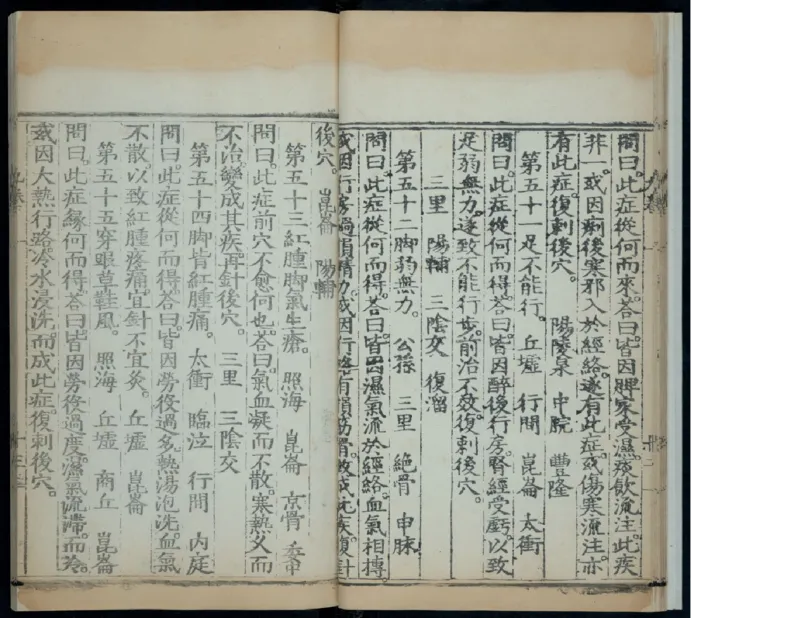 問曰。此症從何而來。答曰。皆因脾家受濕。痰飲流注。此疾
非一。或因痢後寒邪入於經絡。遂有此症。或傷寒流注。亦
有此症。復刺後穴。　陽陵泉　中脘　豐隆
第五十一足不能行。　丘墟　行間　崑崙　太衝
問曰。此症從何而得。答曰。皆因醉後行房。腎經受虧。以致
足弱無力。遂致不能行步。前治不效。復刺後穴。
三里　陽輔　三陰交　復溜
第五十二脚弱無力。　公孫　三里　絕骨　申脉
問曰。此症從何而得。答曰。皆因濕氣流於經絡。血氣相搏。
或因行房過損精力。或因行路有損筋骨。致成此疾。復針
後穴。　崑崙　陽輔
第五十三紅腫脚氣生瘡。　照海　崑崙　京骨　委中
問曰。此症前穴不愈。何也。答曰。氣血凝而不散。寒熱久而
不治。變成其疾。再針後穴。　三里　三陰交
第五十四脚背紅腫痛。　太衝　臨泣　行間　内庭
問曰。此症從何而得。答曰。皆因勞役過多。熱湯泡洗。血氣
不散。以致紅腫疼痛。宜針不宜灸。　丘墟　崑崙
第五十五穿眼草鞋風。　照海　丘墟　商丘　崑崙
問曰。此症緣何而得。答曰。皆因勞役過度。濕氣流滯。而冷。
或因大熱行路。冷水浸洗。而成此症。復刺後穴。